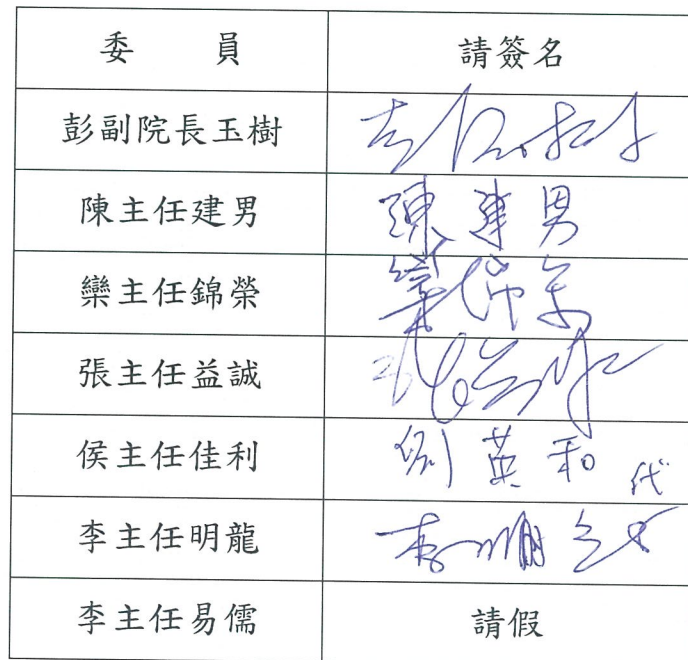 委員 請簽名
彭副院長玉樹
陳主任建男 陳建男
欒主任錦榮
張主任益誠
侯主任佳利 劉英和 代
李主任明龍
李主任易儒 請假